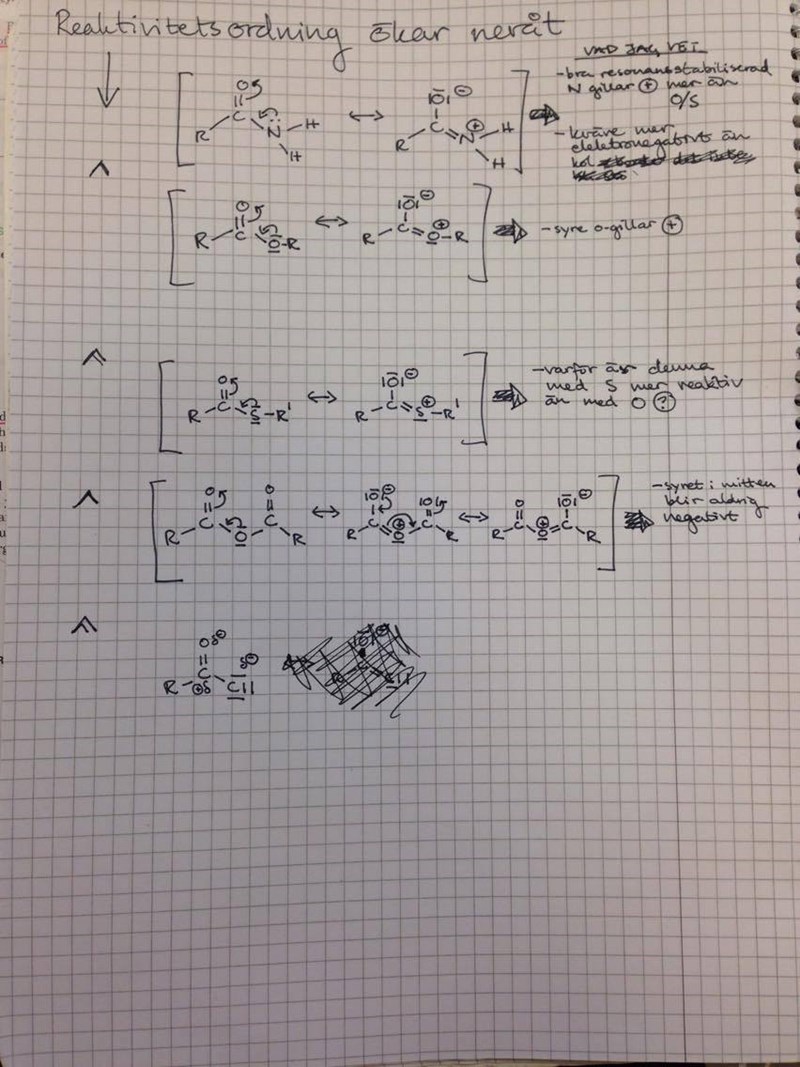 Reaktivitetsordning ökar neråt
VAD JAG VET
-bra resonansstabiliserad
N gillar ⊕ mer än
O/S
-kväve mer
elektronegativt än
kol
O
C
R
N
H
H
|O|⊖
C
R
N⊕
H
H
O
R
C
O-R
|O|⊖
R
C
O⊕-R
-syre o-gillar ⊕
O
R
C
S-R'
|O|⊖
R
C
S⊕-R'
-varför är denna
med S mer reaktiv
än med O ?
O
O
R
C
O
C
R
|O|⊖
|O
R
C
O⊕
C
R
O
|O|⊖
R
C
O⊕
C
R
-syret i mitten
blir aldrig
negativt
Oδ⊖
C
R
⊕δ
δ⊖
Cl|